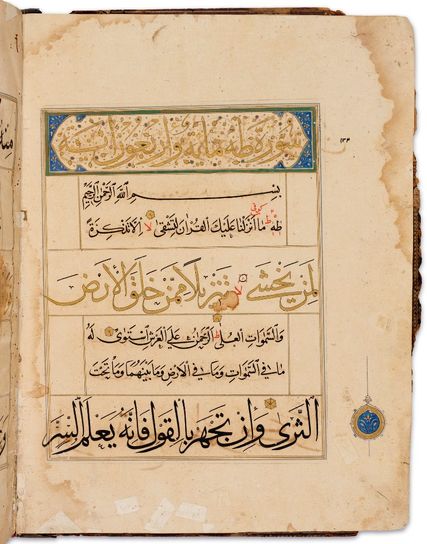 سورة طه مائة واربعون
بِسْمِ اللَّهِ الرَّحْمَنِ الرَّحِيمِ
كوفي
طه مَا اَنْزَلْنَا عَلَيْكَ الْقُرْاٰنَ لِتَشْقٰى لا اِلَّا تَذْكِرَةً
لِمَنْ يَخْشٰى لا تَنْزِيلًا مِمَّنْ خَلَقَ الْاَرْضَ
وَالسَّمٰوَاتِ الْعُلٰى اَلرَّحْمٰنُ عَلَى الْعَرْشِ اسْتَوٰى لَهُ
مَا فِي السَّمٰوَاتِ وَمَا فِي الْاَرْضِ وَمَا بَيْنَهُمَا وَمَا تَحْتَ
الثَّرٰى وَاِنْ تَجْهَرْ بِالْقَوْلِ فَاِنَّهُ يَعْلَمُ السِّرَّ